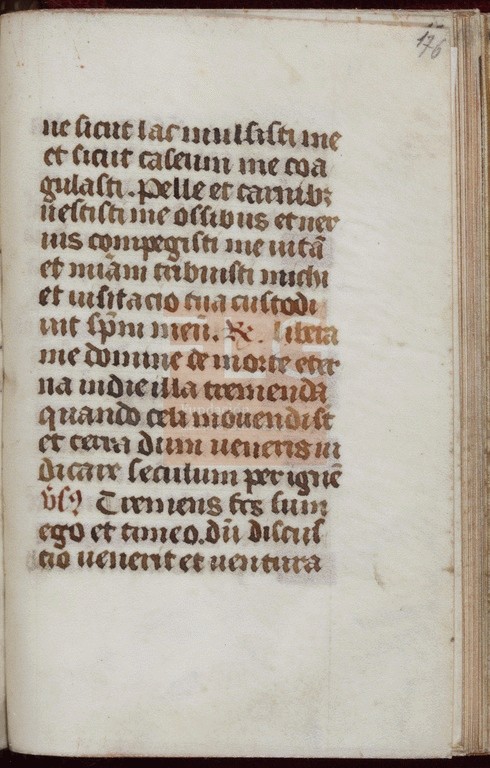 176
ne sicut lac mulsisti me
et sicut caseum me coa
gulasti. Pelle et carnibꝫ
uestisti me ossibus et ner
uis compegisti me uitã
et miãm tribuisti michi
et uisitacio tua custodi
uit spm̃ meũ. ℟. Libera
me domine de morte eter
na in die illa tremenda
quando celi mouendi st̃
et terra dum ueneris iu
dicare seculum per ignẽ
Tremens fcs̃ sum
ego et timeo. dũ discus
cio uenerit et uentura